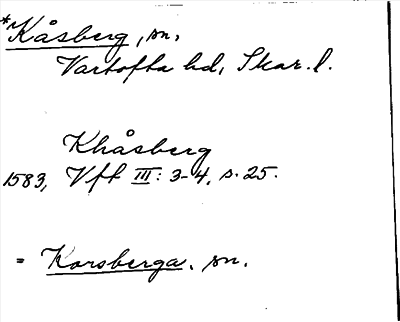 *Kåsberg, sn,
Vartofta hd, Skar. l.
Khåsberg
1583, Vft III: 3-4, s. 25.
= Korsberga. sn.